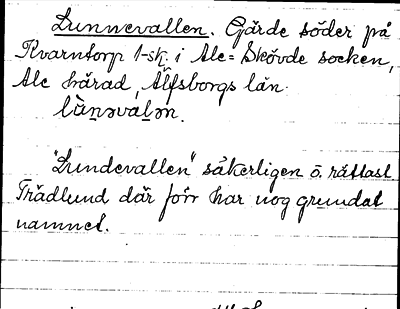 Lunnevallen. Gärde söder på
Kvarntorp 1-sk. i Ale-Skövde socken,
Ale härad, Älfsborgs län.
lùnəvalən.
"Lundevallen" säkerligen o. rättast
Trädlund där förr har nog grundat
namnet.